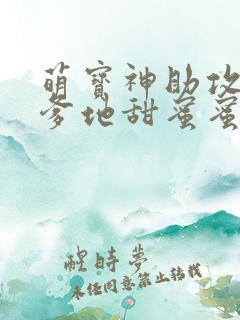 萌寶神助攻
爹地甜蜜蜜
醒時夢
未經同意禁止轉載